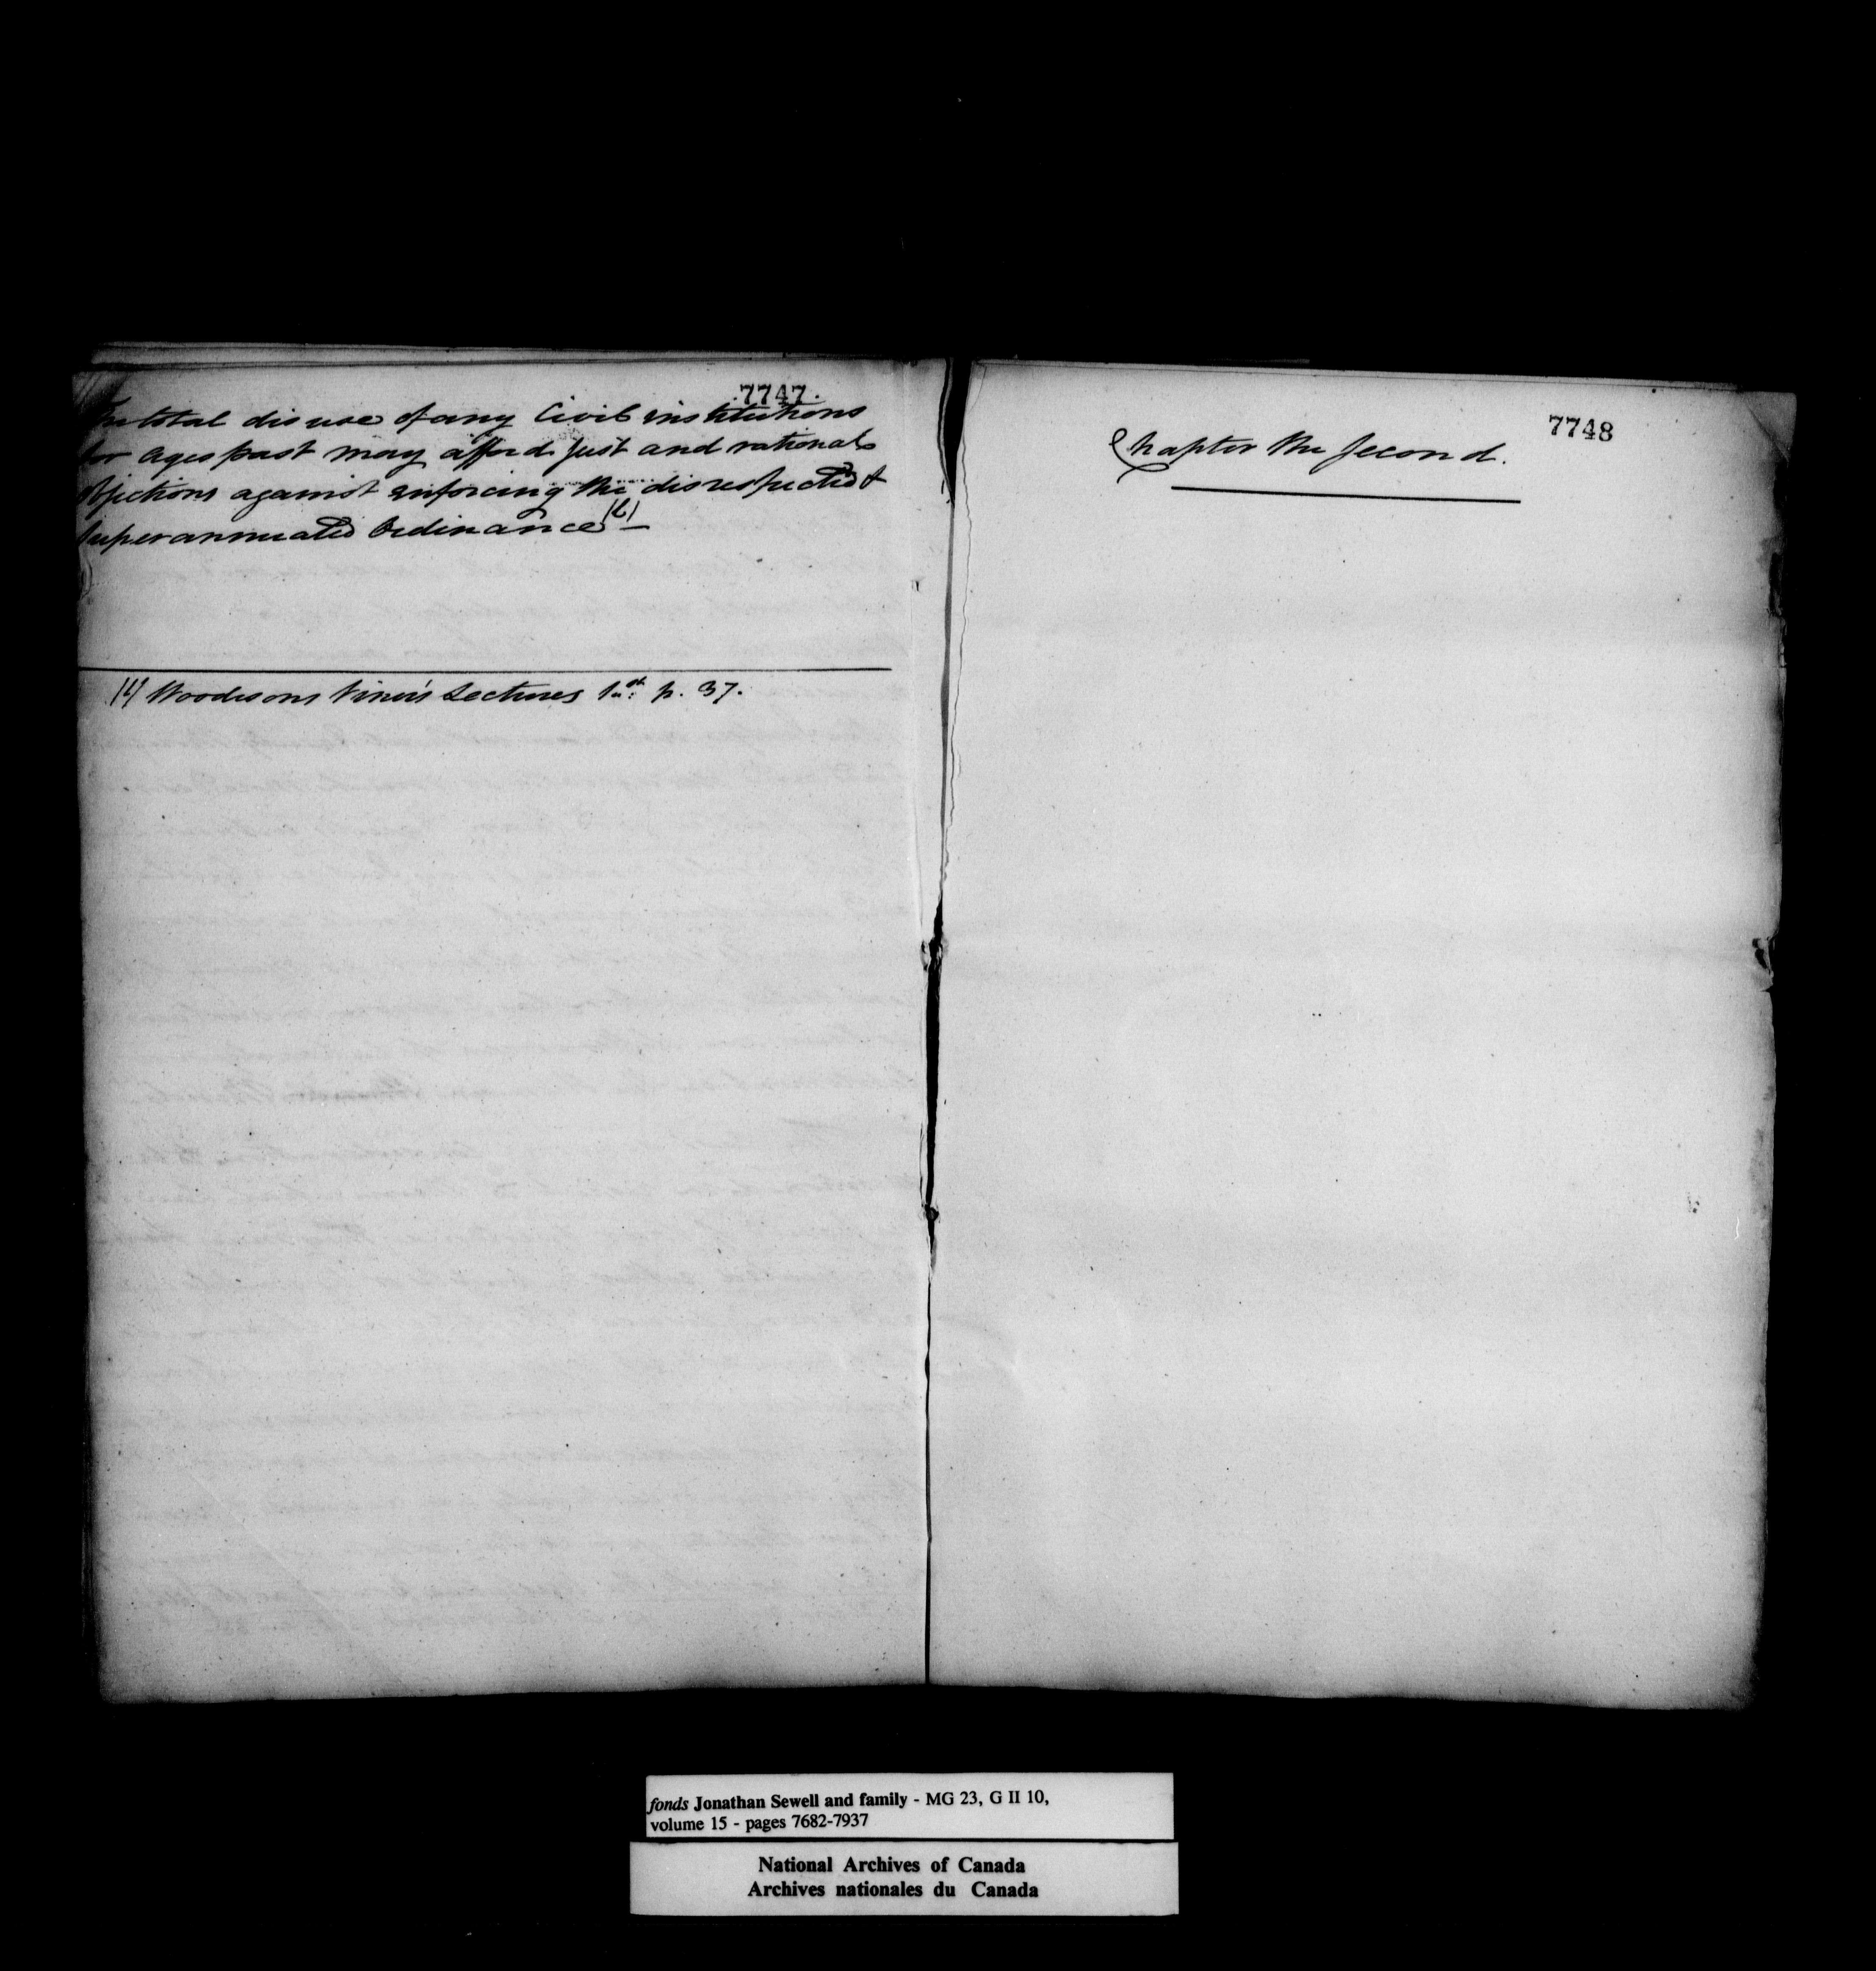 7747.
The total disuse of any Civil institutions
for ages past may afford just and rational
objections against enforcing the disrespected &
superannuated Ordinance (l) —
(l) Woodesons Viner's Lectures 1st p. 37.
7748
Chapter the Second.
fonds Jonathan Sewell and family - MG 23, G II 10,
volume 15 - pages 7682-7937
National Archives of Canada
Archives nationales du Canada